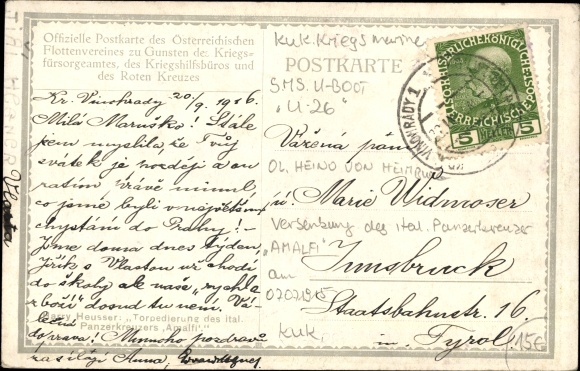 Offizielle Postkarte des Österreichischen
Flottenvereines zu Gunsten des Kriegs-
fürsorgeamtes, des Kriegshilfsbüros und
des Roten Kreuzes
POSTKARTE
k.u.k. Kriegsmarine
SMS. U-BOOT
"U-26"
OL. HEINO VON HEIMBURG
Versenkung des ital. Panzerkreuzer
"AMALFI"
am
07.07.1915
kuk.
15€
5 HELLER 5
VINOHRADY 1
Kr. Vinohrady 20/9. 1916.
Milá Maruško! Stále
jsem myslila, že Tvůj
svátek je později a on
zatím právě minul,
co jsme byli v největším
chystání do Prahy! –
Jsme doma dnes týden,
Jiřík s Vlastou už chodí
do školy ale naše
dosud tu není.
doprava! Mnoho pozdravů
zasílají Anna,
Vlasta
Harry Heusser: „Torpedierung des ital.
Panzerkreuzers „Amalfi"."
Vážená paní
Marie Widmoser
Innsbruck
Staatsbahnstr. 16.
Tyrol.